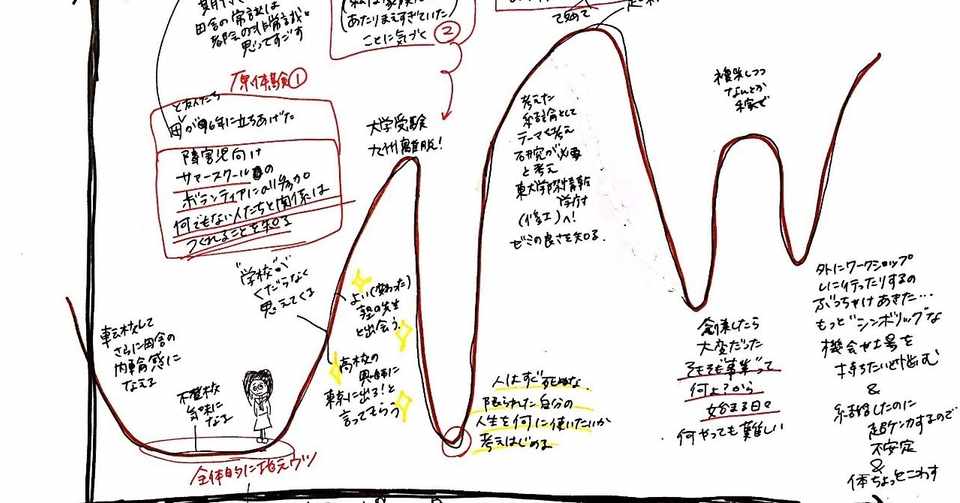 田舎の常識は
都会の非常識と
思ってすごす
あたりまえすぎていた
ことに気づく ②
原体験①
と友人たち
が中6年に立ちあげた
障害児向け
サマースクールの
ボランティアにall参加。
何でもない人たちと関係は
つくれることを知る
大学受験
九州離脱!
"学校"が
くだらなく
思えてくる
よい(変わった)
塾の先生
と出会う
高校の
恩師に
東京に出ろ!と
言ってもらう
転校して
さらに田舎の
内輪感に
なえる
不登校
気味に
なる
全体的に地元ウツ
人はすぐ死ぬな、
限られた自分の
人生を何に使いたいか
考えはじめる
考えた
結論として
テーマを考え
研究が必要
と考え
東大学際情報
学府
(修士)へ!
ゼミの良さを知る
複業しつつ
なんとか
稼ぐ
創業したら
大変だった
そもそも"事業"って
何よ?から
始まる日々
何やっても難しい
外にワークショップ
しに行ったりするの
ぶっちゃけあきた…
もっと"シンボリック"な
機会や土号を
持ちたいと悩む
&
結婚したのに
超ケンカするので
不安定
&
体ちょっとこわす